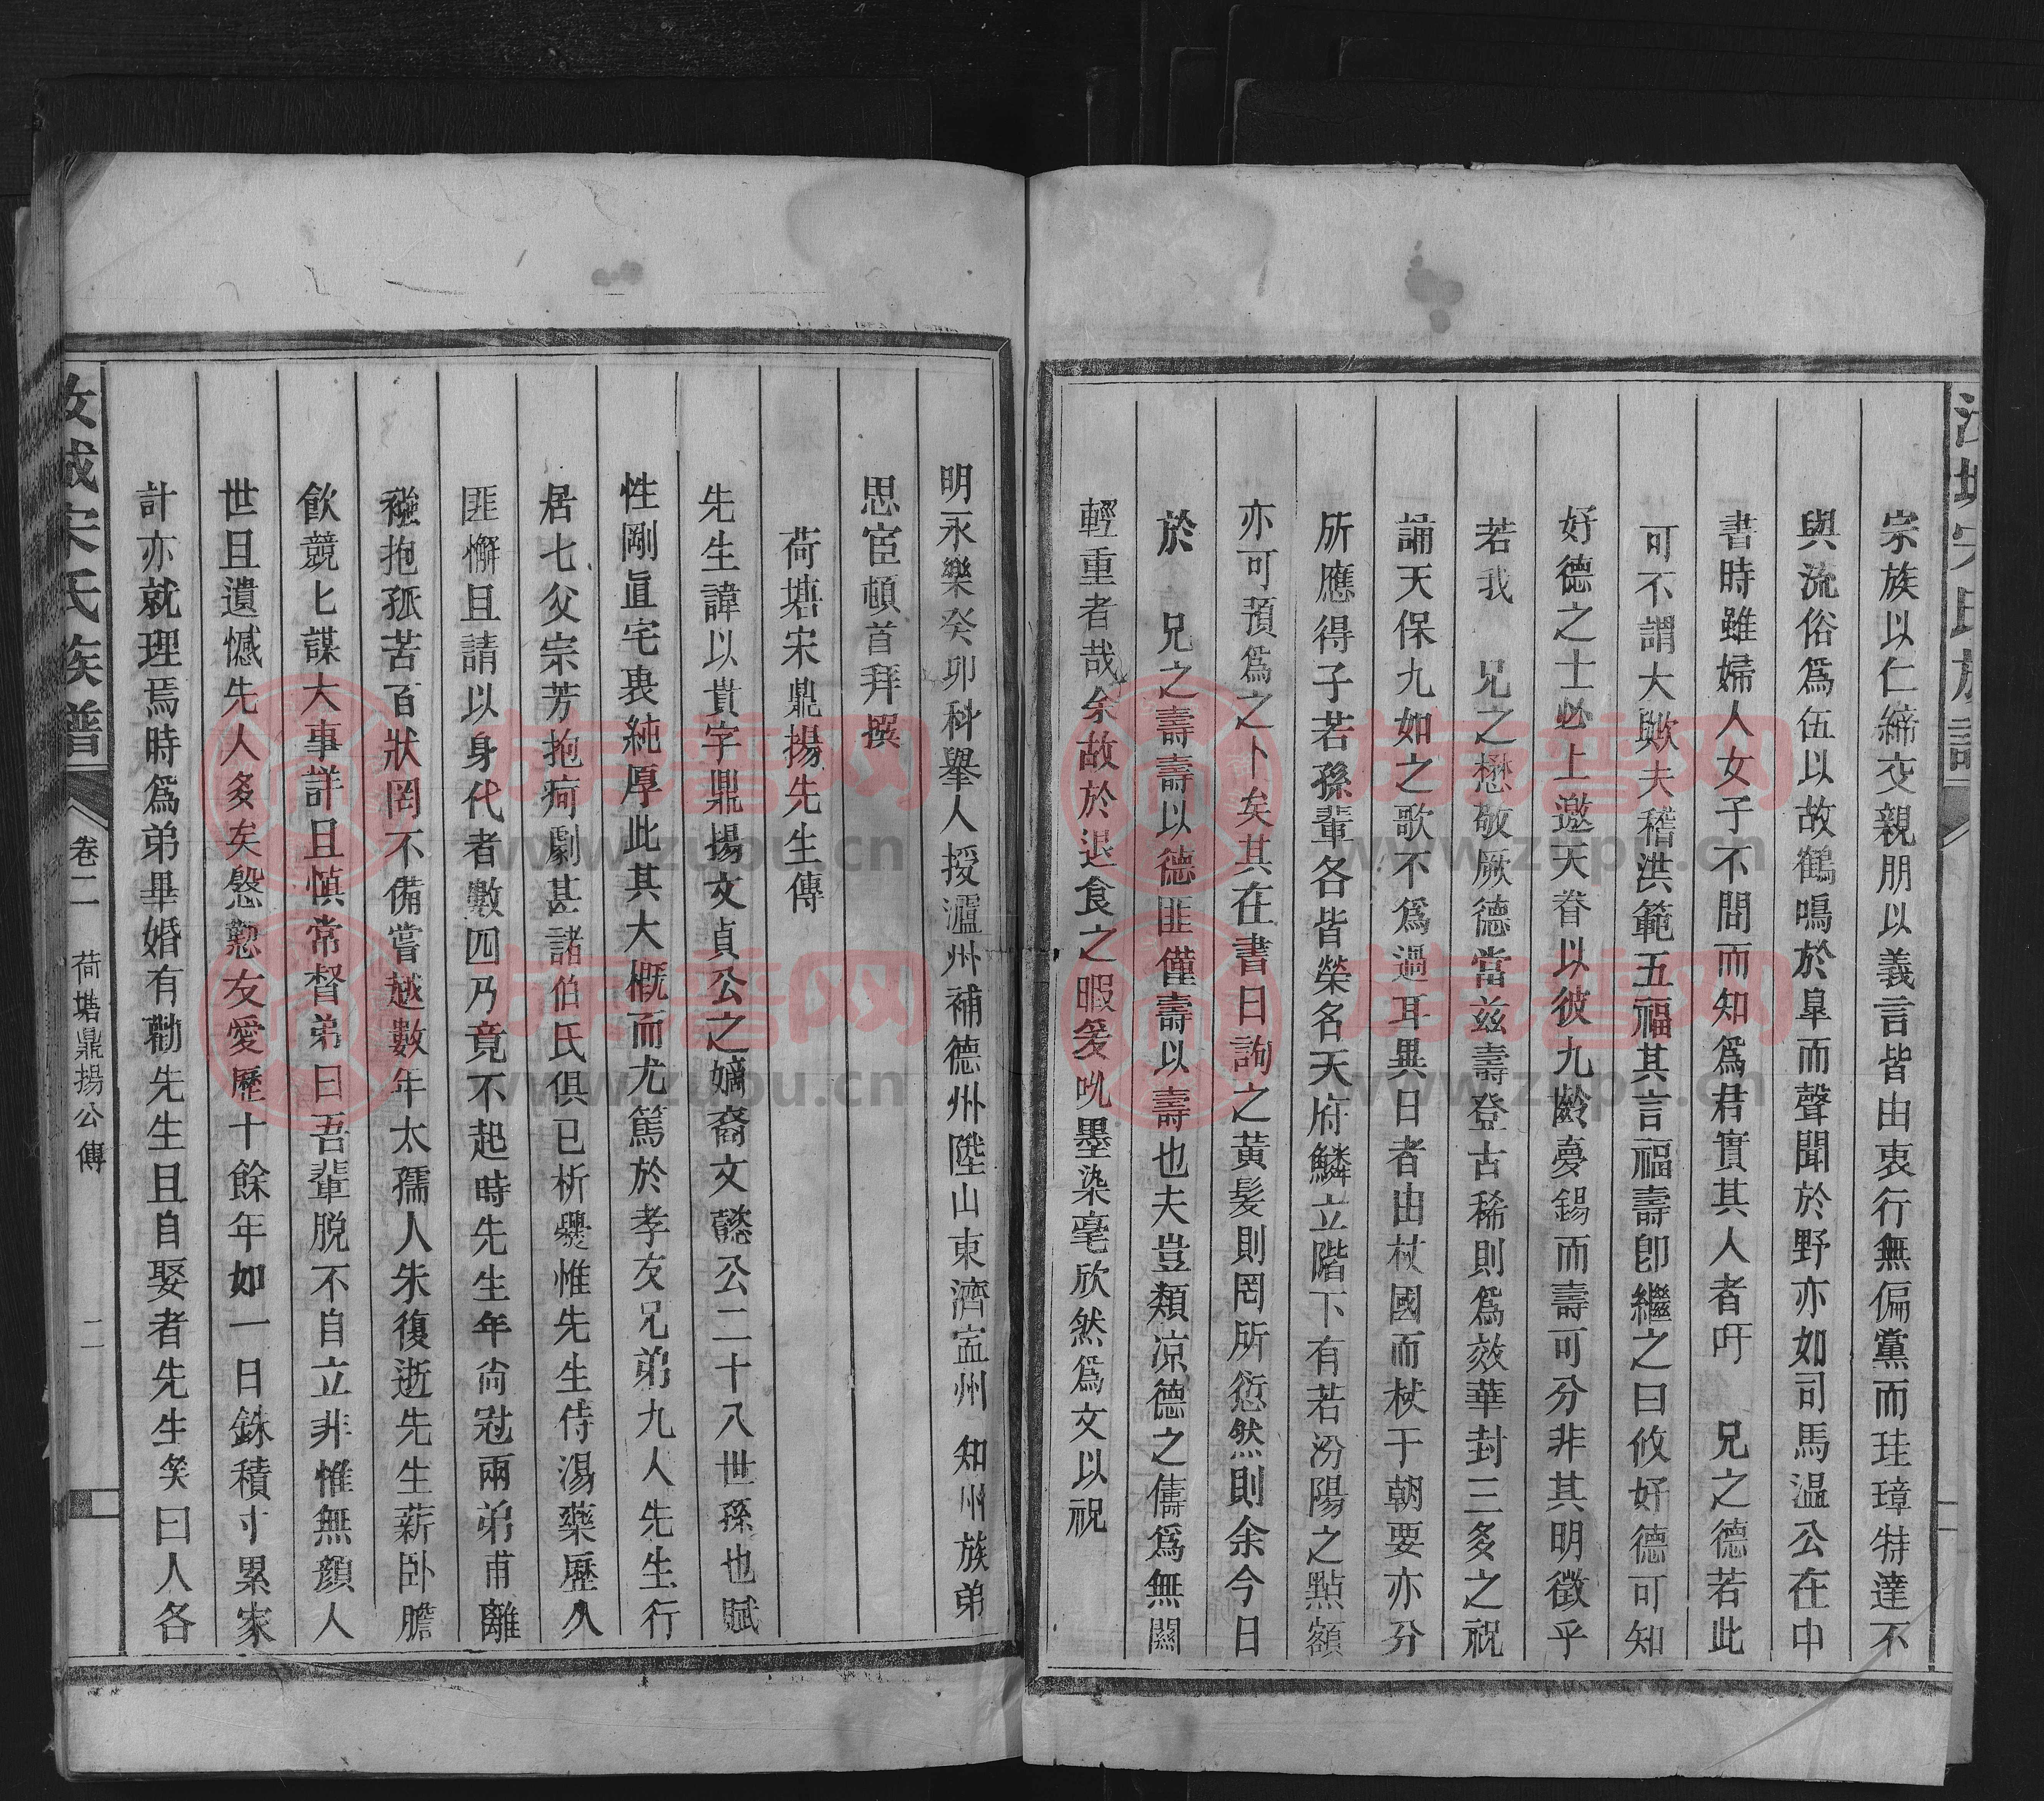 宗族以仁締交親朋以義言皆由衷行無偏黨而珪璋特達不
與流俗爲伍以故鶴鳴於臯而聲聞於野亦如司馬溫公在中
書時雖婦人女子不問而知爲君實其人者吁 兄之德若此
可不謂大歟夫稽洪範五福其言福壽卽繼之曰攸好德可知
好德之士必上邀天眷以彼九齡夢錫而壽可分非其明徵乎
若我 兄之懋敬厥德當兹壽登古稀則爲效華封三多之祝
誦天保九如之歌不爲過耳異日者由杖國而杖于朝要亦分
所應得子若孫輩各皆榮名天府鱗立階下有若汾陽之點額
亦可預爲之卜矣其在書曰詢之黃髮則罔所愆然則余今日
於 兄之壽壽以德匪僅壽以壽也夫豈類凉德之儔爲無關
輕重者哉余故於退食之暇爰吮墨染毫欣然爲文以祝
明永樂癸卯科舉人授瀘州補德州陞山東濟寍州 知州族弟
思宦頓首拜撰
荷塘宋鼎揚先生傳
先生諱以貴字鼎揚文貞公之嫡裔文懿公二十八世孫也賦
性剛直宅衷純厚此其大概而尤篤於孝友兄弟九人先生行
居七父宗芳抱疴劇甚諸伯氏俱已析爨惟先生侍湯藥歷久
匪懈且請以身代者數四乃竟不起時先生年尙冠兩弟甫離
襁抱孤苦百狀罔不備嘗越數年太孺人朱復逝先生薪卧膽
飮競匕謀大事詳且慎常督弟曰吾輩脫不自立非惟無顏人
世且遺憾先人多矣慇懃友愛歷十餘年如一日銖積寸累家
計亦就理焉時爲弟畢婚有勸先生且自娶者先生矣曰人各
汝城宋氏族譜 卷二 荷塘鼎揚公傳 二
族谱网 www.zupu.cn
族谱网 www.zupu.cn
族谱网 www.zupu.cn
族谱网 www.zupu.cn